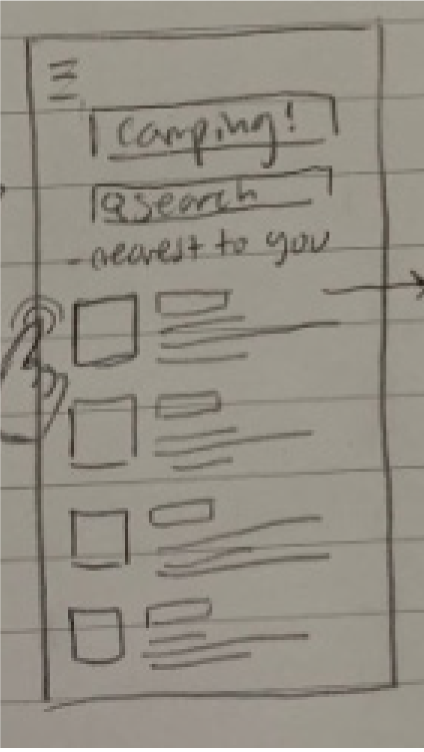 camping!
search
- nearest to you